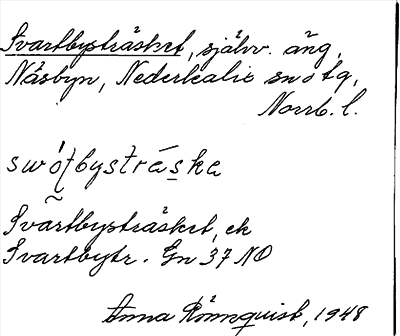 Svartbyträsket, självv. äng,
Näsbyn, Nederkalix snötg,
Norrb. l.
swótbystráska
Svartbyträsket, ek
Svartbytr. Gn 37 NO
Anna Rönnquist, 1948